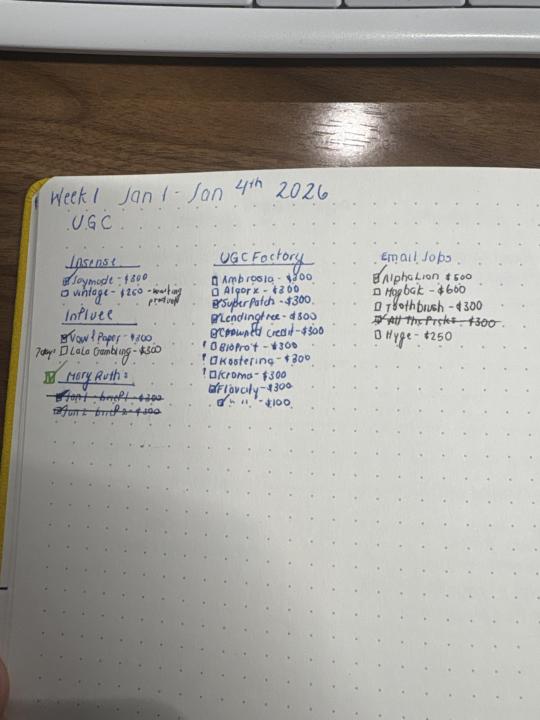 Week 1 Jan 1 - Jan 4th 2026
UGC
Insense
Joymode - $300
Vintage - $260 - waiting
product
Influee
Vowl Paper - $300
7 days LaLa Gambling - $300
Mary Ruth's
Jan 1 - brief 1 - $300
Jan 2 - brief 2 - $300
UGC Factory
Ambrosia - $300
Algorx - $300
SuperPatch - $300
Lendingtree - $300
Crowned Credit - $300
! BioProt - $300
! Kostering - $300
! Kroma - $300
Flavcity - $300
" " - $100
Email Jobs
AlphaLion $500
Magbak - $600
Toothbrush - $300
All The Pricks - $300
Hyge - $250